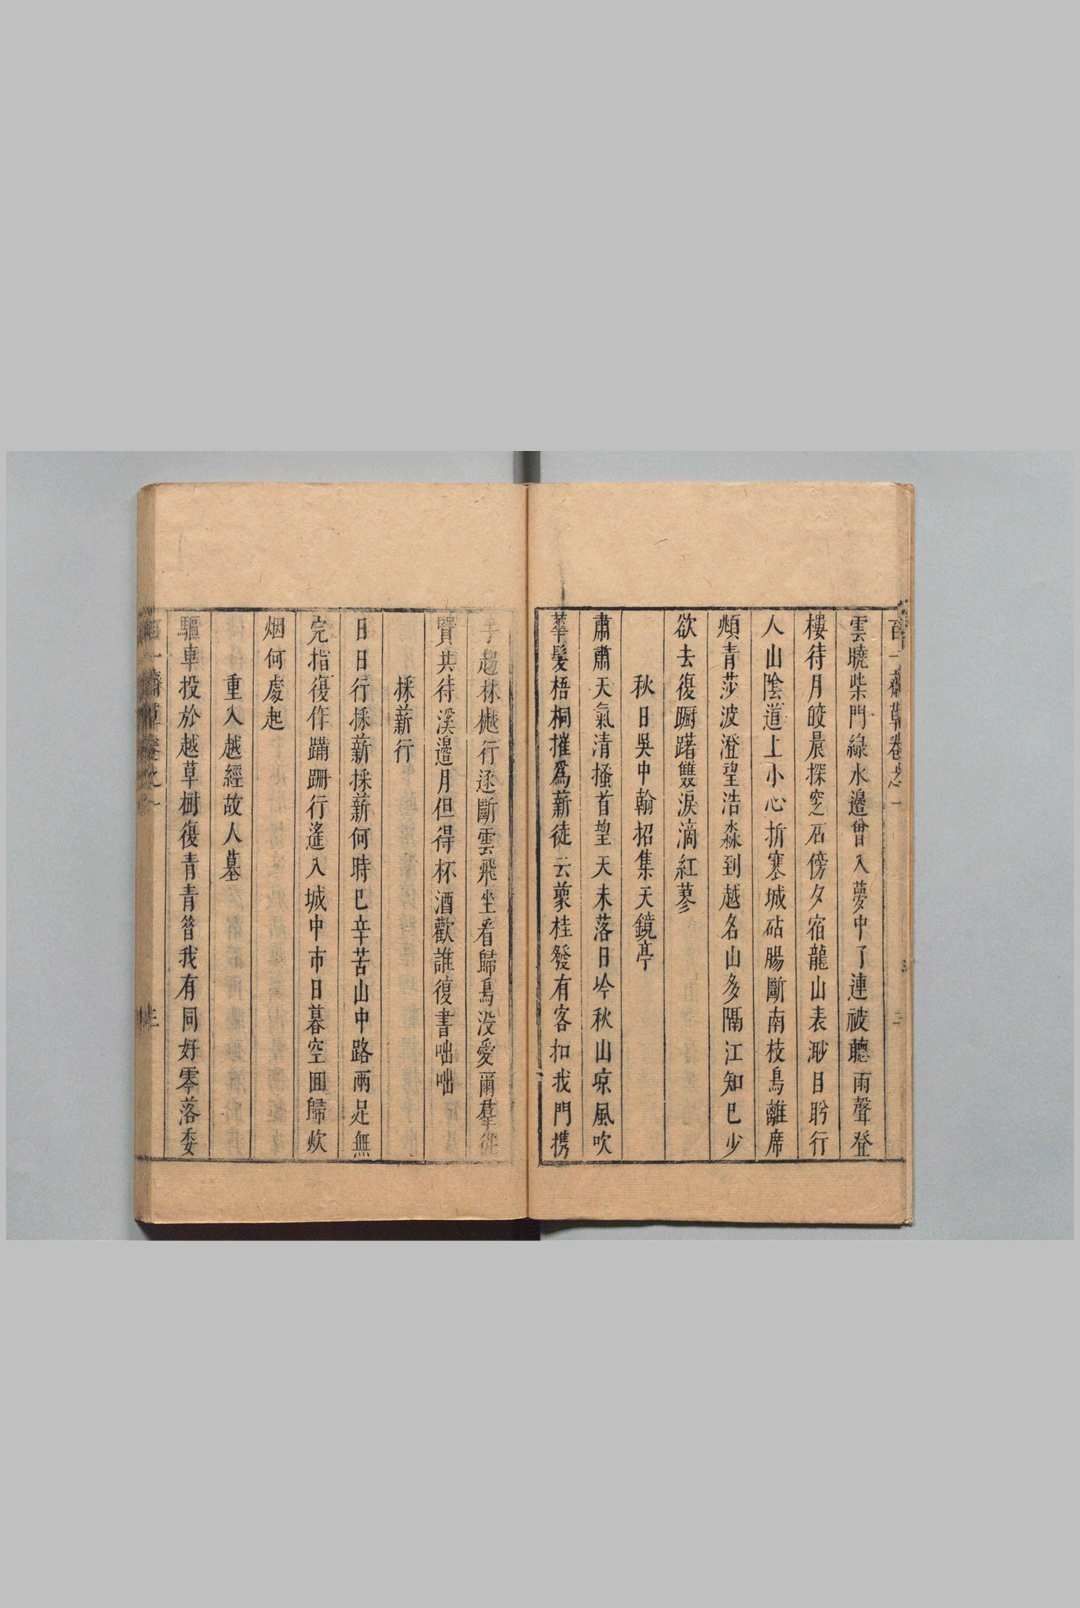 雲曉柴門綠水邊曾入夢中了連被聽雨聲登
樓待月皎晨探窆石傍夕宿龍山表渺目盻行
人山陰道上小心折塞城砧腸斷南枝鳥離席
頫青莎波澄望浩淼到越名山多隔江知已少
欲去復蹰躇雙淚滴紅蓼
秋日吳中翰招集天鏡亭
肅肅天氣清搔首望天末落日吟秋山凉風吹
華髮梧桐摧爲薪徒云蘽桂發有客扣我門携
手趨林樾行逐斷雲飛坐看歸鳥没愛爾羣從
賢共待溪邊月但得杯酒歡誰復書咄咄
採薪行
日日行採薪採薪何時已辛苦山中路兩足無
完指復作蹣跚行遙入城中市日暮空囬歸炊
烟何處起
重入越經故人墓
驅車投於越草樹復青青昝我有同好零落委